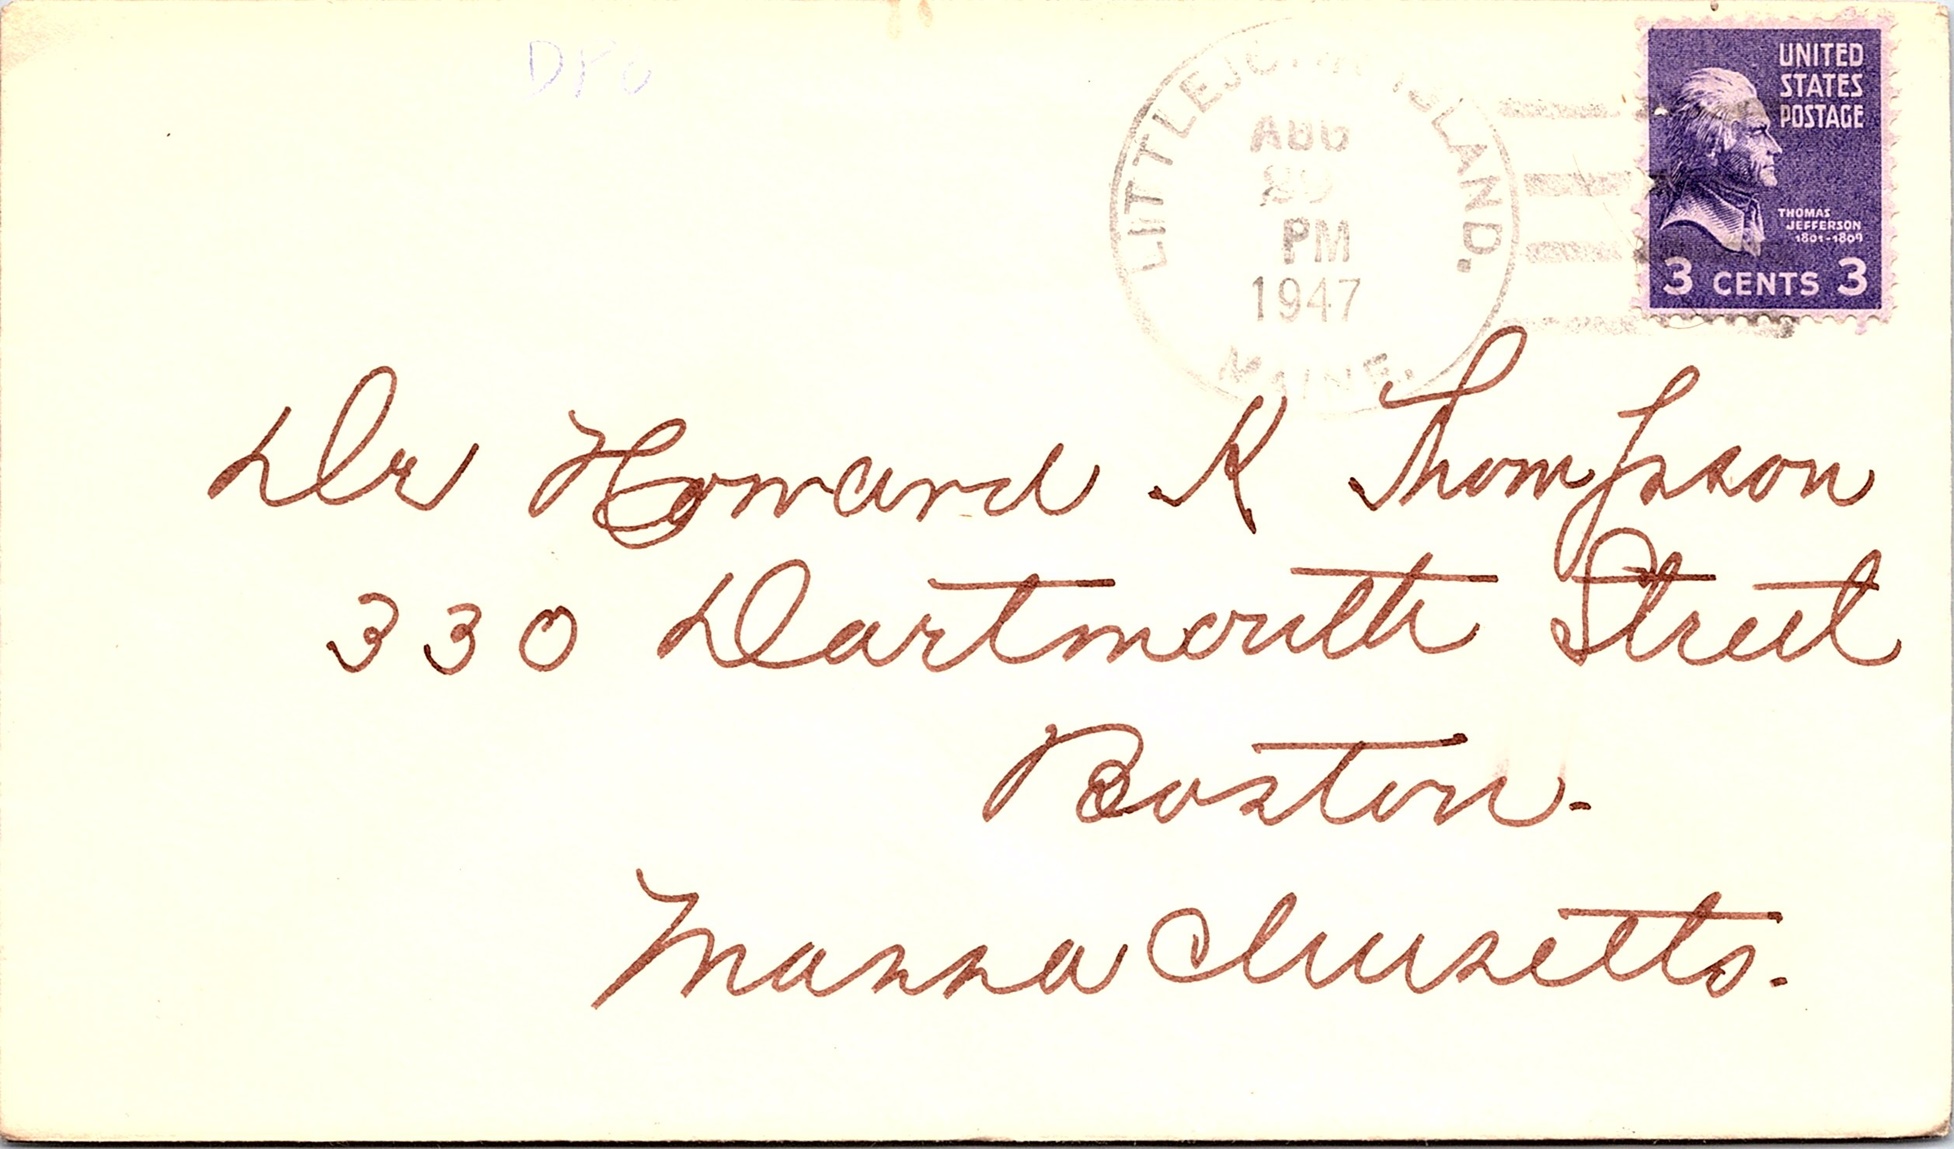 Dro
LITTLEJOHN ISLAND.
AUG
PM
1947
MAINE.
UNITED
STATES
POSTAGE
THOMAS
JEFFERSON
1801-1809
3 CENTS 3
Dr Howard K Thompson
330 Dartmouth Street
Boston-
Massachusetts.